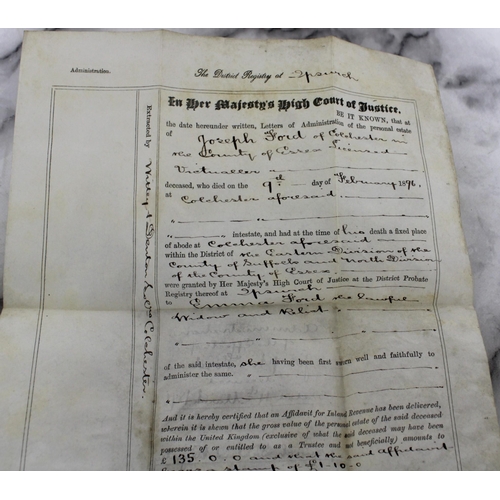 Administration.
The District Registry at Ipswich
In Her Majesty's High Court of Justice.
BE IT KNOWN, that at
the date hereunder written, Letters of Administration of the personal estate
of Joseph Ford of Colchester in
the County of Essex Licensed
Victualler
deceased, who died on the 9th day of February 1896,
at Colchester aforesaid
intestate, and had at the time of his death a fixed place
of abode at Colchester aforesaid
within the District of the Eastern Division of the
County of Suffolk and North Division
of the County of Essex
were granted by Her Majesty's High Court of Justice at the District Probate
Registry thereof at Ipswich
to Ford the lawful
Widow and Relict
of the said intestate, she having been first sworn well and faithfully to
administer the same.
And it is hereby certified that an Affidavit for Inland Revenue has been delivered,
wherein it is shewn that the gross value of the personal estate of the said deceased
within the United Kingdom (exclusive of what the said deceased may have been
possessed of or entitled to as a Trustee and not beneficially) amounts to
£ 135.0.0 and that the said Affidavit
a stamp of £1-10-0
Extracted by Colchester.